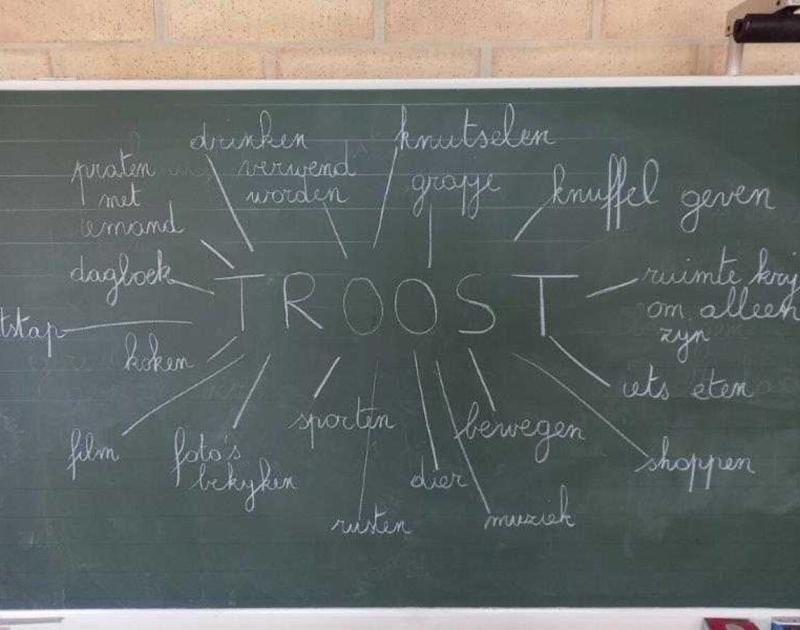 drinken
knutselen
praten
met
iemand
verwend
worden
grapje
knuffel geven
dagboek
TROOST
ruimte krij
om alleen
zijn
tstap
koken
iets eten
film
foto's
bekijken
sporten
bewegen
shoppen
dier
rusten
muziek